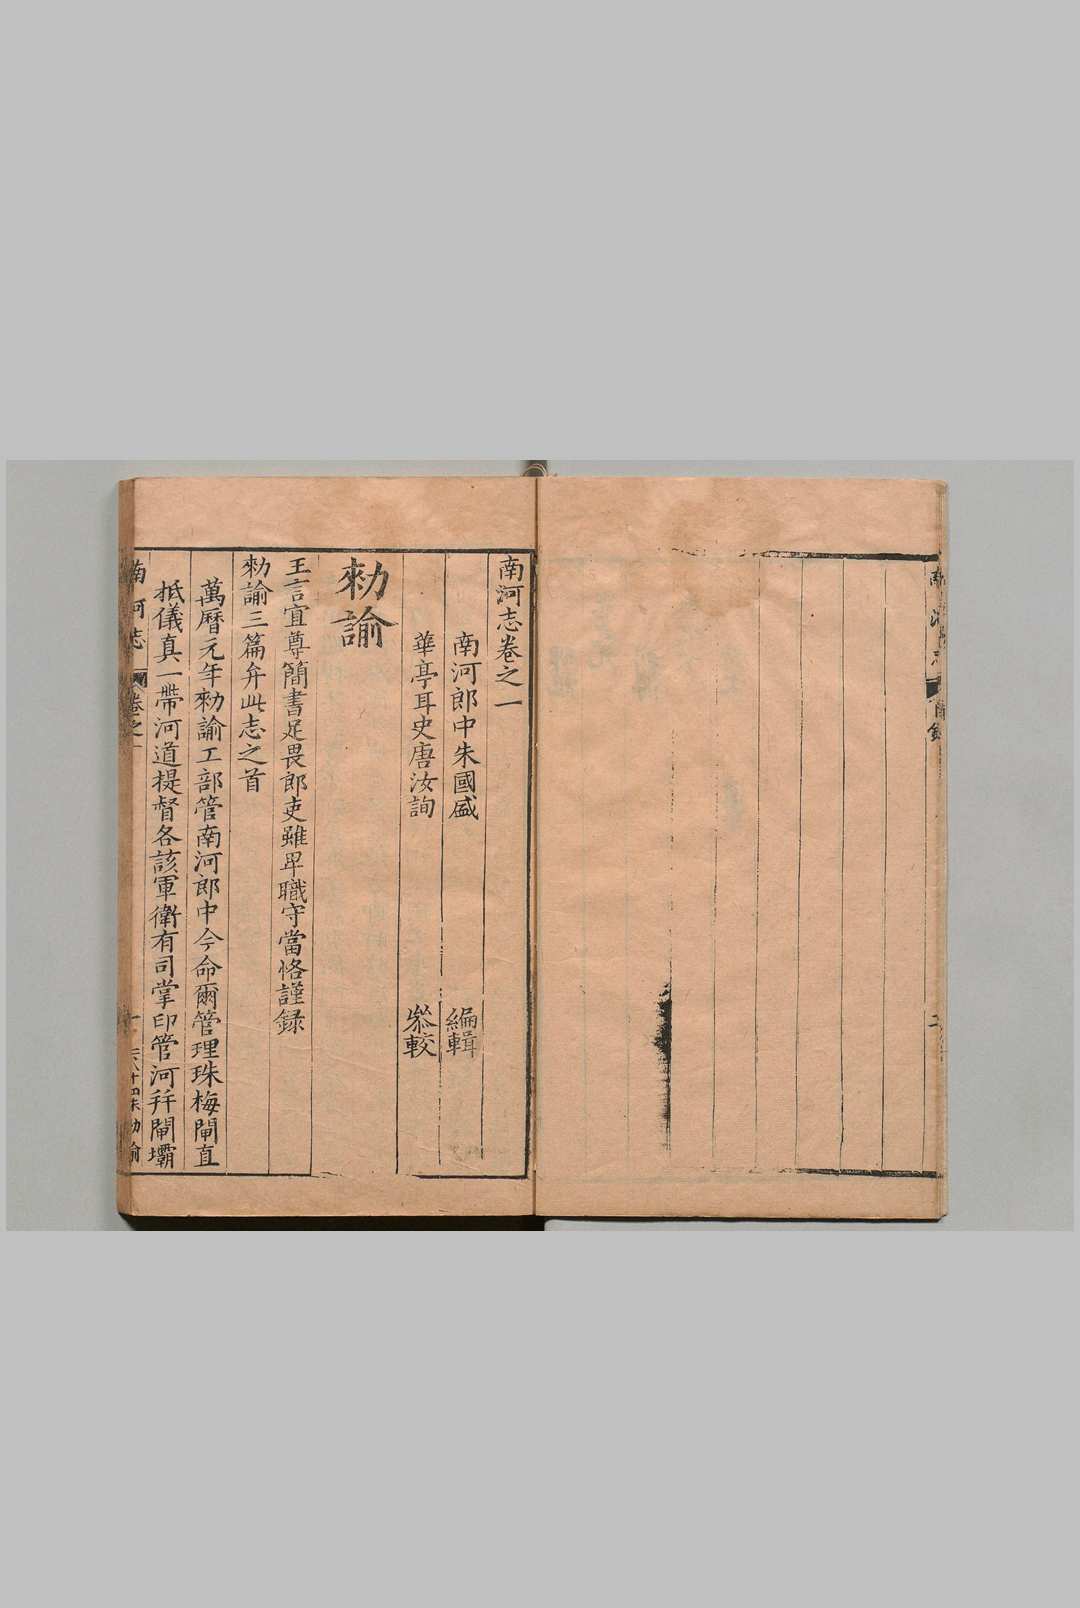 南河志卷之一
南河郎中朱國盛 編輯
華亭耳史唐汝詢 叅較
勑諭
王言宜尊簡書足畏郎吏雖卑職守當恪謹録
勑諭三篇弁此志之首
萬曆元年勑諭工部管南河郎中今命爾管理珠梅閘直
抵儀真一帶河道提督各該軍衛有司掌印管河幷閘壩
南河志 卷之一